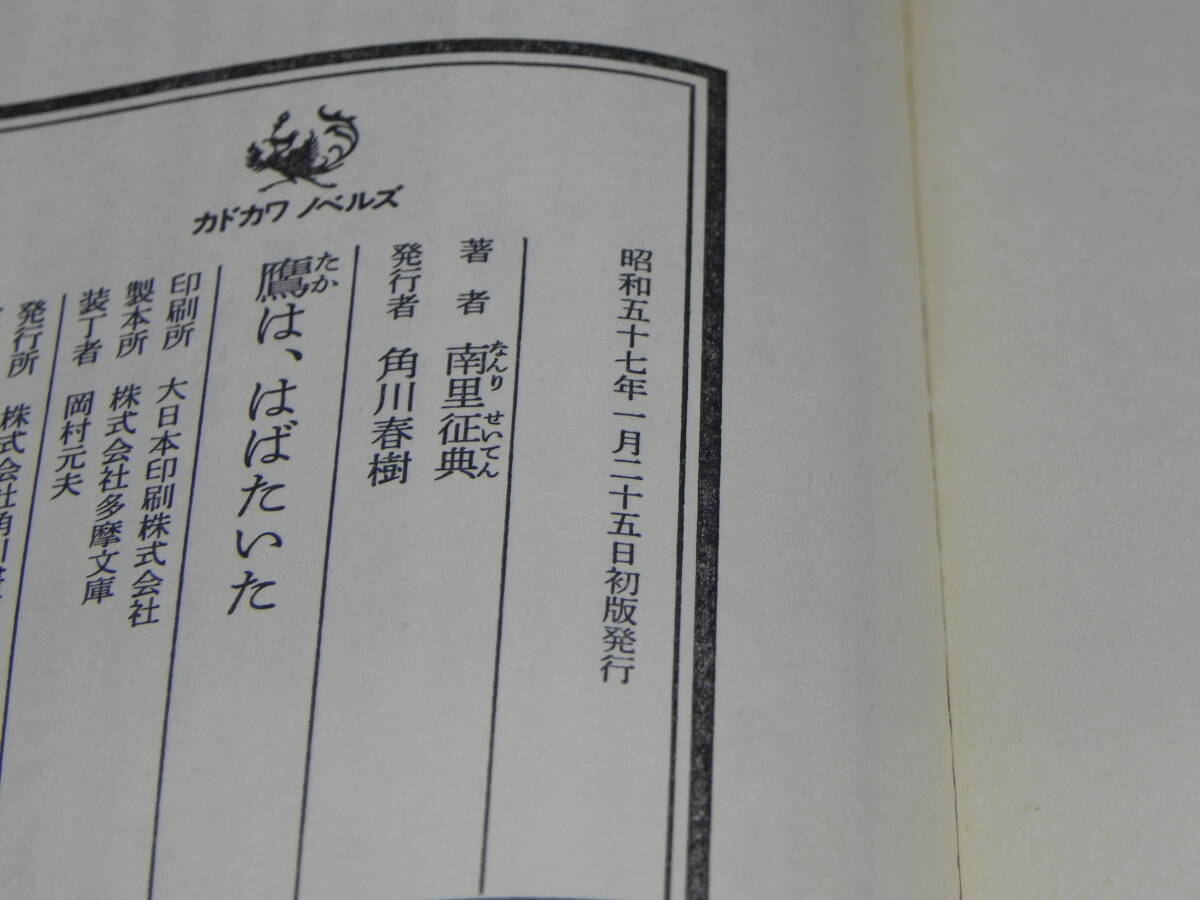 カドカワ ノベルズ
昭和五十七年一月二十五日初版発行
著者 南里征典
なんり せいてん
発行者 角川春樹
鷹は、はばたいた
たか
印刷所 大日本印刷株式会社
製本所 株式会社多摩文庫
装丁者 岡村元夫
発行所 株式会社角川